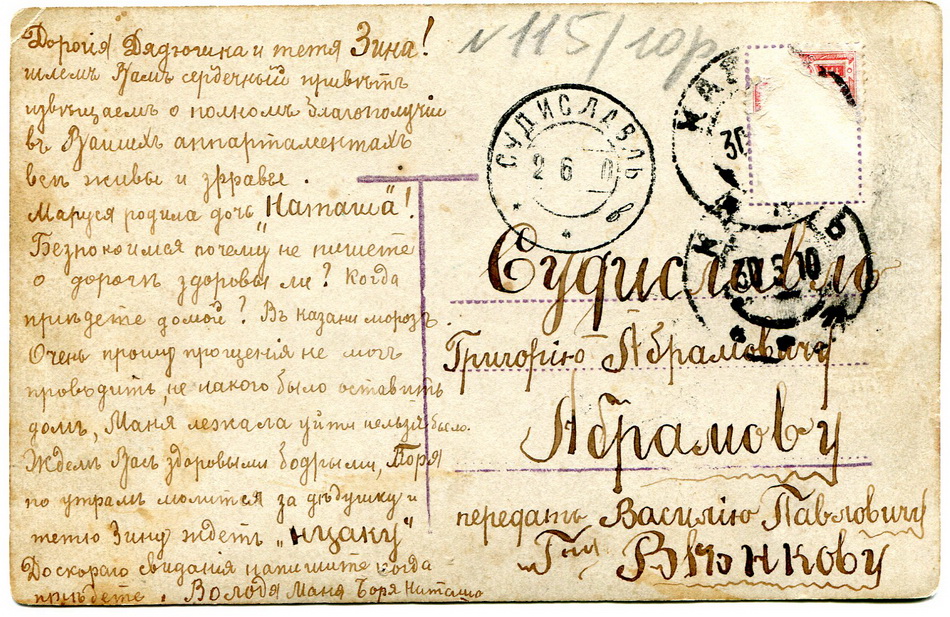 Дорогія Дядюшка и тетя Зина!
шлемъ Вамъ сердечный привѣтъ
извѣщаемъ о полномъ благополучіи
въ Вашихъ аппартаментахъ
всѣ живы и
Маруся родила дочь "Наташа"!
Безпокоимся почему не пишете
о дорогѣ здоровы ли? Когда
пріѣдете домой? Въ казани морозъ
Очень прошу прощенія не могъ
проводить, не накого было оставить
домъ, Маня лежала уйти нельзя было.
Ждемъ Васъ здоровыми бодрыми, Боря
по утрамъ молится за дѣдушку и
тетю Зину ждетъ „
До скораго свиданія напишите когда
пріѣдете. Володя Маня Боря Наташа
№115/
СУДИСЛАВЛЬ
2 6
в
30
30 5 10
Судиславль
Григорію Абрамовичу
Абрамову
передать Василію Павловичу
Вьюнкову